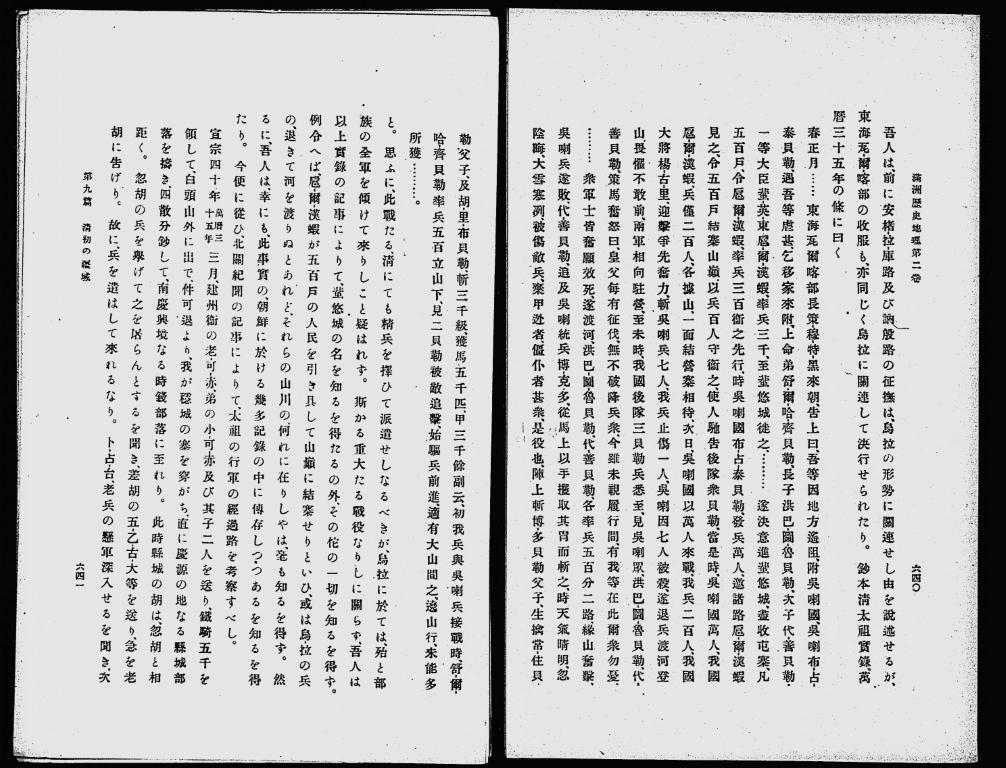 滿洲歷史地理第二卷
六四〇
吾人は前に安楮拉庫路及び訥殷路の征撫は烏拉の形勢に關連せし由を說述せるが、
東海瓦爾喀部の收服も、亦同じく烏拉に關連して決行せられたり。鈔本淸太祖實錄、萬
曆三十五年の條に曰く
春正月……東海瓦爾喀部長策穆特黑來朝、吿上曰、吾等因地方遙阻、附吳喇國、吳喇布占
泰貝勒遇吾等虐甚、乞移家來附、上命弟舒爾哈齊貝勒、長子洪巴圖魯貝勒、次子代善貝勒、
一等大臣蜚英東、扈爾漢蝦、率兵三千、至蜚悠城徙之、………遂決意進蜚悠城、盡收屯寨、凡
五百戶、令扈爾漢蝦、率兵三百衞之先行、時吳喇國布占泰貝勒、發兵萬人、邀諸路、扈爾漢蝦
見之、令五百戶結寨山巓、以兵百人守衞之、使人馳吿後隊衆貝勒、當是時、吳喇國萬人、我國
扈爾漢蝦兵僅二百人、各據山一面、結營寨相待、次日吳喇國以萬人來戰我兵二百人、我國
大將楊古里、迎擊爭先奮力、斬吳喇兵七人、我兵止傷一人、吳喇因七人被殺、遂退兵渡河登
山、畏懼不敢前、兩軍相向駐營、至未時我國後隊三貝勒兵悉至、見吳喇眾、洪巴圖魯貝勒、代
善貝勒、策馬奮怒曰、皇父每有征伐、無不破降、兵衆今雖未親履行間、有我等在此、爾衆勿憂、
………衆軍士皆奮願效死、遂渡河、洪巴圖魯貝勒、代善貝勒、各率兵五百、分二路緣山奮擊、
吳喇兵遂敗、代善貝勒、追及吳喇統兵博克多、從馬上以手攫取其冑而斬之、時天氣晴明、忽
陰晦大雪寒冽、被傷敵兵、棄甲逃者、僵仆者甚衆、是役也、陣上斬博多貝勒父子、生擒常住貝
勒父子、及胡里布貝勒、斬三千級、獲馬五千匹、甲三千餘副云、初我兵與吳喇兵接戰時、舒爾
哈齊貝勒率兵五百立山下、見二貝勒被敵追擊、始驅兵前進、適有大山間之、遶山行、未能多
所獲………。
と。思ふに、此戰たる淸にても精兵を擇ひて派遣せしなるべきが、烏拉に於ては殆と部
族の全軍を傾けて來りしこと疑はれず。斯かる重大たる戰役なりしに關らず、吾人は
以上實錄の記事によりて、蜚悠城の名を知るを得たるの外、その佗の一切を知るを得ず。
例令へば扈爾漢蝦が五百戶の人民を引き具して山巓に結寨せりといひ、或は烏拉の兵
の、退きて河を渡りぬとあれど、それらの山川の何れに在りしやは、毫も知るを得ず。然
るに、吾人は、幸にも、此事實の、朝鮮に於ける幾多記錄の中に傳存しつつあるを知るを得
たり。今便に從ひ、北關紀聞の記事によりて、太祖の行軍の經過路を考察すべし。
宣宗四十年萬曆三十五年三月、建州衞の老可赤、弟の小可赤及び其子二人を送り、鐵騎五千を
領して、白頭山外に出で、件可退より、我が穩城の寨を穿がち、直に慶源の地なる縣城部
落を擣き、四散分鈔して、南慶興境なる時錢部落に至れり。此時縣城の胡は、忽胡と相
距く。忽胡の兵を擧げて之を屠らんとするを聞き、差胡の五乙古大等を送り、急を老
胡に吿げり。故に、兵を遣はして來れるなり。卜占台、老兵の懸軍深入せるを聞き、次
第九篇　淸初の疆域
六四一